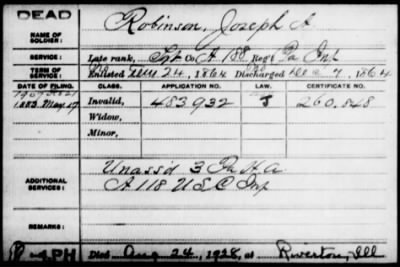 DEAD
NAME OF SOLDIER: Robinson, Joseph A
SERVICE: Late rank, Sgt Co A 188 Reg't Pa Inf
TERM OF SERVICE: Enlisted 24, 1864 Discharged Dec 7, 1864
DATE OF FILING. CLASS. APPLICATION NO. LAW. CERTIFICATE NO.
1883 May 17 Invalid, 483932 260,848
Widow,
Minor,
ADDITIONAL SERVICES: Unassd 3 Pa H A
A 118 U S C Inf
REMARKS:
PH Died Aug 24, 1928, at Riverton, Ill